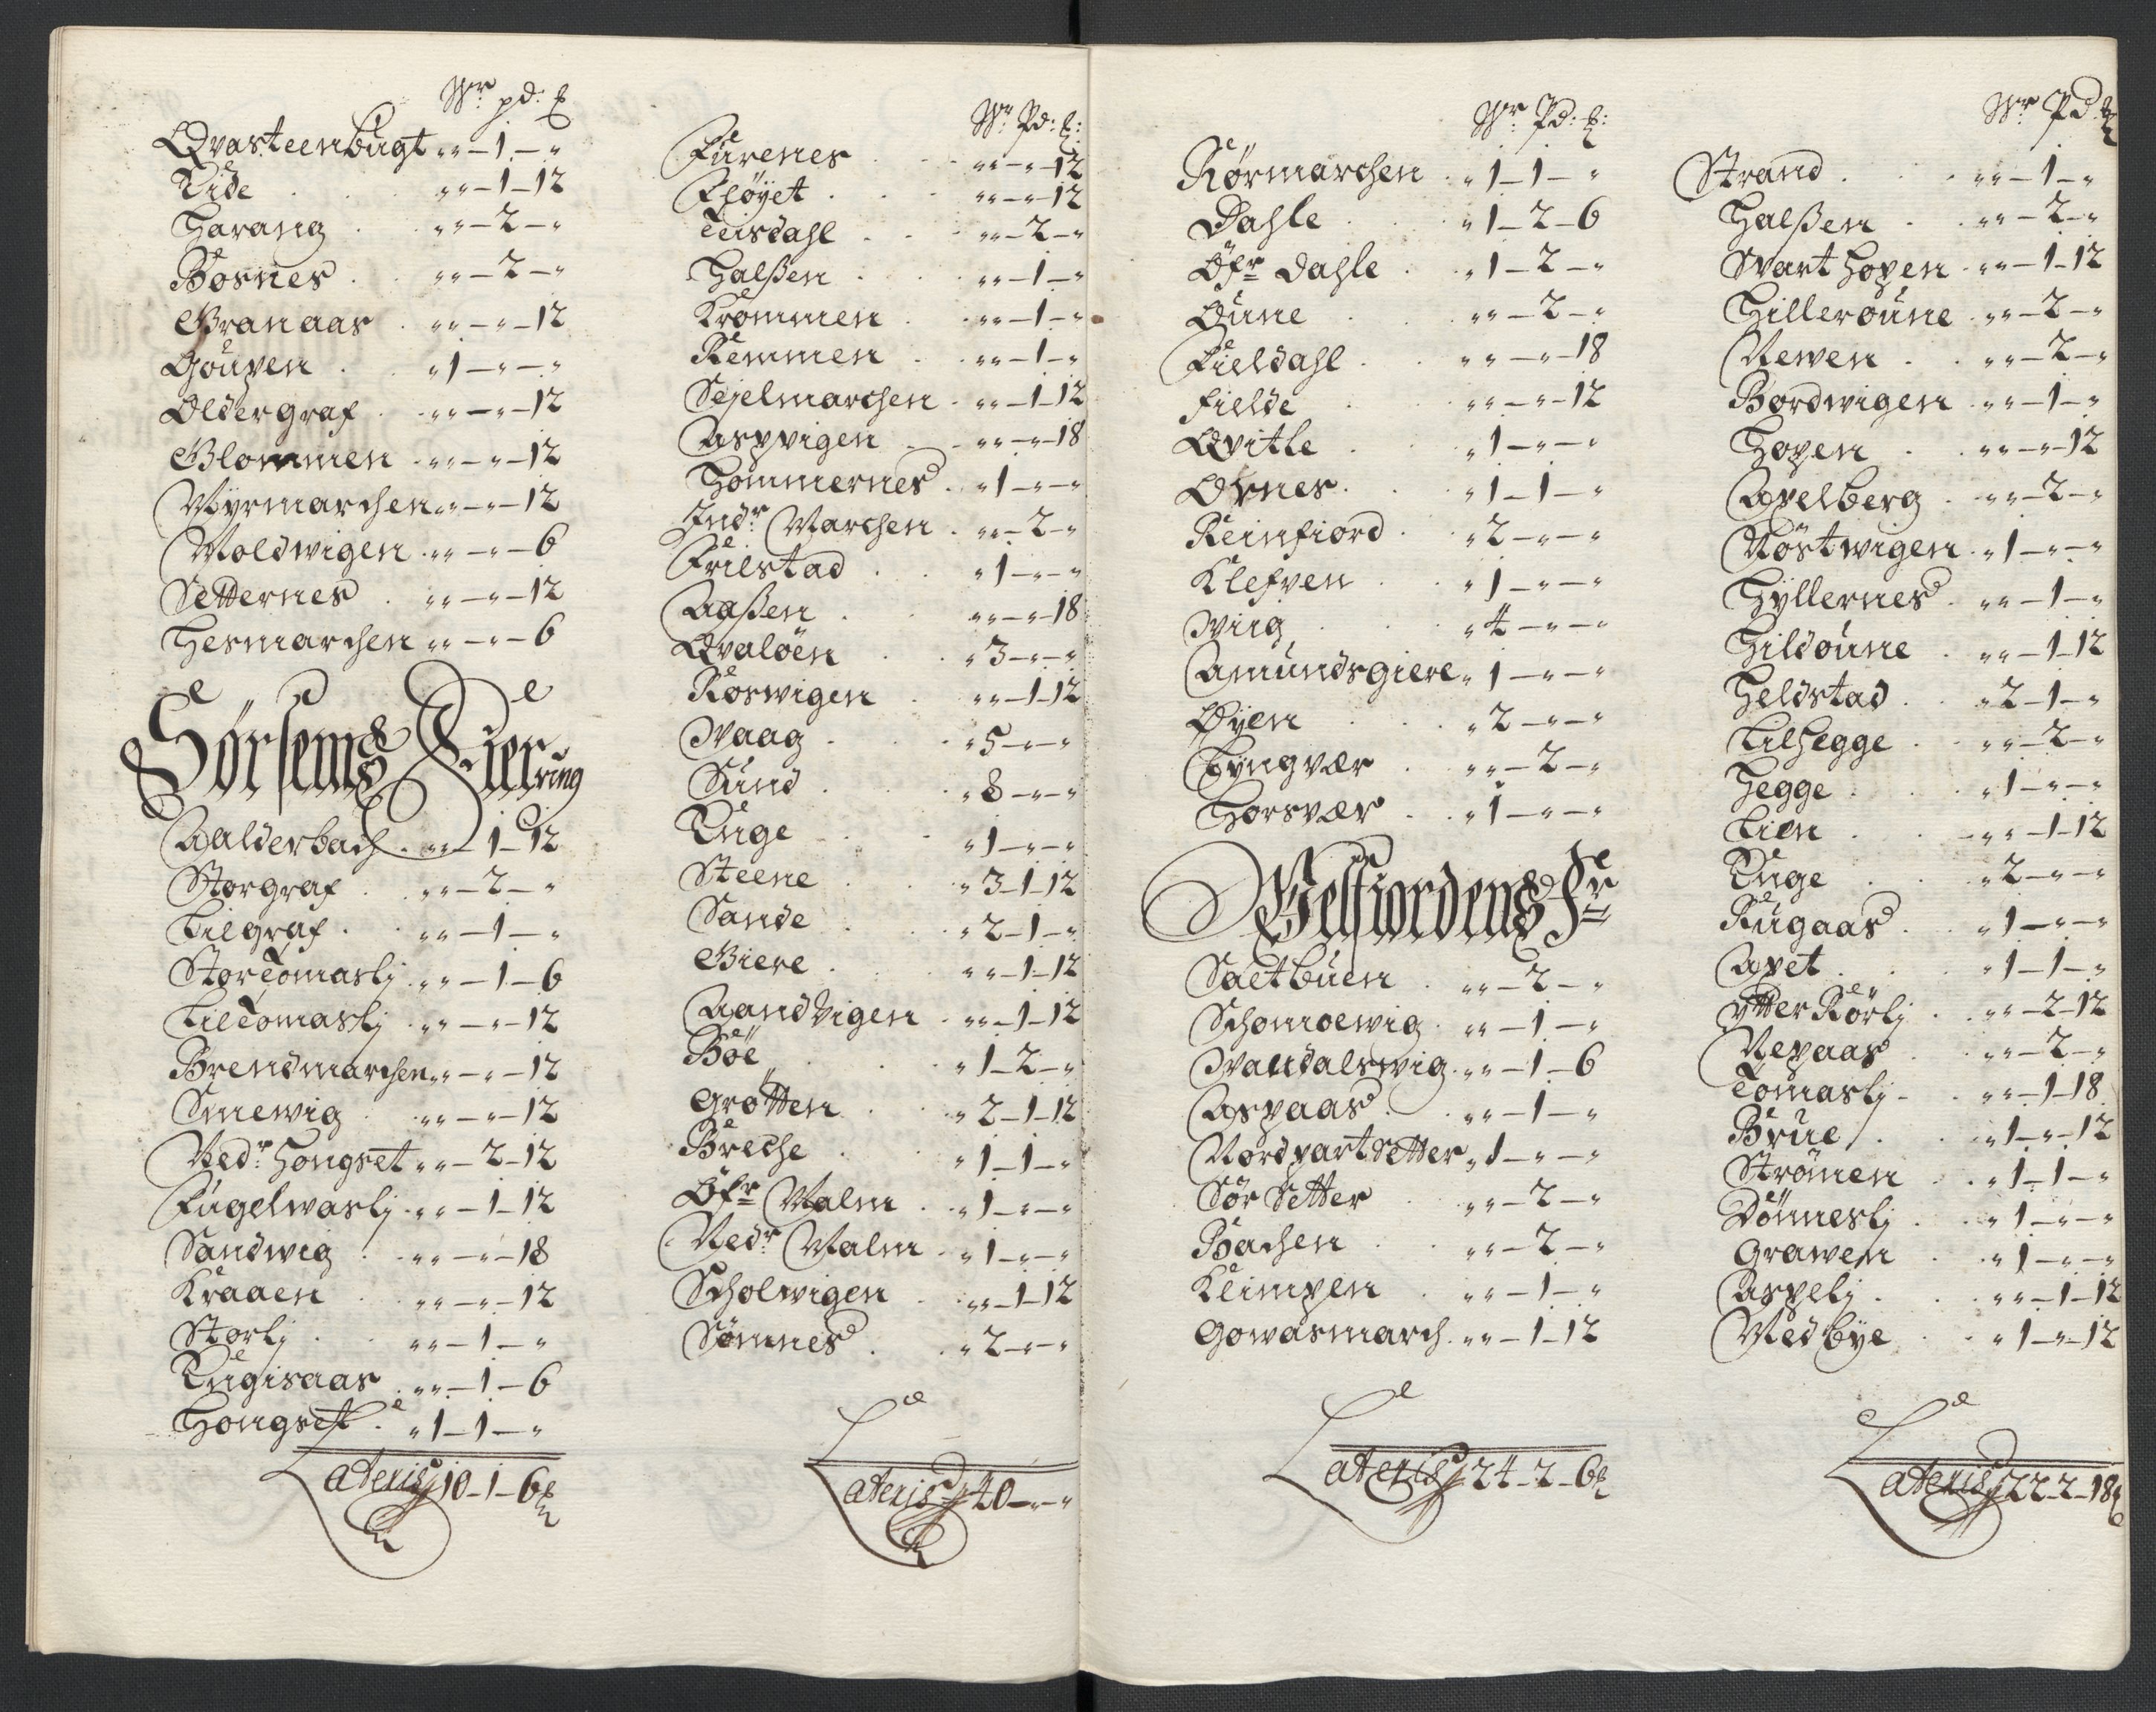 Wr pd: ℔
Qvasteenbugt „„ – 1 – „
Tide „„ – 1 – 12
Harang „„ – 2 – „
Bosnes „„ – 2 – „
Granaas „„ – „ – 12
Goupen „ 1 – „ – „
Oldergraf „„ – „ – 12
Blommen „„ – „ – 12
Myrmarchen „„ – „ – 12
Moldwigen „„ – „ – 6
Setternes „„ – „ – 12
Hesmarchen „„ – „ – 6
Sørsems Fierring
Aalderbach „„ – 1 – 12
Storgraf „„ – 2 – „
Lilgraf „„ – 1 – „
Stortomaslj „„ – 1 – 6
Liltomaslj „„ – „ – 12
Brendmarchen „„ – „ – 12
Smewig „„ – „ – 12
Nedr Hongset „„ – 2 – 12
Fugelwaslj „„ – 1 – 12
Sandwig „„ – „ – 18
Kraaen „„ – „ – 12
Storlj „„ – 1 – „
Rugisaas „„ – 1 – 6
Hongset „ 1 – 1 – „
Lateris 10 – 1 – 6 ℔
Wr Pd: ℔:
Furenes „„ – „ – 12
Fløyet „„ – „ – 12
Teisdahl „„ – 2 – „
Halßen „„ – 1 – „
Krommen „„ – 1 – „
Remmen „„ – 1 – „
Sejelmarchen „„ – 1 – 12
Aspvigen „„ – „ – 18
Hommernes „ 1 – „ – „
Indr Marchen „„ – 2 – „
Frilstad „ 1 – „ – „
Aaßen „„ – „ – 18
Qvaløen „ 3 – „ – „
Roswigen „„ – 1 – 12
Waag „ 5 – „ – „
Sund „ 8 – „ – „
Tuge „ 1 – „ – „
Steene „ 3 – 1 – 12
Sande „ 2 – 1 – „
Giere „„ – 1 – 12
Aandvigen „„ – 1 – 12
Bøe „ 1 – 2 – „
Grøtten „ 2 – 1 – 12
Breche „ 1 – 1 – „
Öfr Malm „ 1 – „ – „
Nedr Malm „ 1 – „ – „
Scholwigen „„ – 1 – 12
Sømnes „ 2 – „ – „
Lateris 40 – „ – „
Wr Pd: ℔:
Rørmarchen „ 1 – 1 – „
Dahle „ 1 – 2 – 6
Öfr Dahle „ 1 – 2 – „
Oune „„ – 2 – „
Fieldahl „„ – „ – 18
Fielde „„ – „ – 12
Qvitle „ 1 – „ – „
Ornes „ 1 – 1 – „
Reinfiord „ 2 – „ – „
Klefven „ 1 – „ – „
Wiig „ 4 – „ – „
Amundsgiere „ 1 – „ – „
Øyen „ 2 – „ – „
Lyngvær „„ – 2 – „
Horsvær „ 1 – „ – „
Welfiordens Fr
Saetbuen „„ – 2 – „
Schomoewig „„ – 1 – „
Waudalswig „„ – 1 – 6
Aspaas „„ – 1 – „
Nordpartsetter „ 1 – „ – „
Sør Setter „„ – 2 – „
Bachen „„ – 2 – „
Kleimpen „„ – 1 – „
Gowasmarch „„ – 1 – 12
Lateris 24 – 2 – 6 ℔
Wr Pd: ℔
Strand „„ – 1 – „
Halßen „„ – 2 – „
Svarthopen „„ – 1 – 12
Hilleroune „„ – 2 – „
Newen „„ – 2 – „
Bordwigen „„ – 1 – „
Hopen „„ – „ – 12
Apelberg „„ – 2 – „
Nøstwigen „ 1 – „ – „
Hyllernes „„ – 1 – „
Hildoune „„ – 1 – 12
Heldstad „ 2 – 1 – „
Lilhegge „„ – 2 – „
Hegge „ 1 – „ – „
Lien „„ – 1 – 12
Tuge „ 2 – „ – „
Rugaas „ 1 – „ – „
Apet „ 1 – 1 – „
Ytter Rørlj „„ – 2 – 12
Nepaas „„ – 2 – „
Tomaslj „„ – 1 – 18
Brue „ 1 – „ – 12
Strømen „ 1 – 1 – „
Dønneslj „ 1 – „ – „
Grawen „ 1 – „ – „
Aspelj „„ – 1 – 12
Nedbye „ 1 – „ – 12
Lateris 22 – 2 – 18 ℔